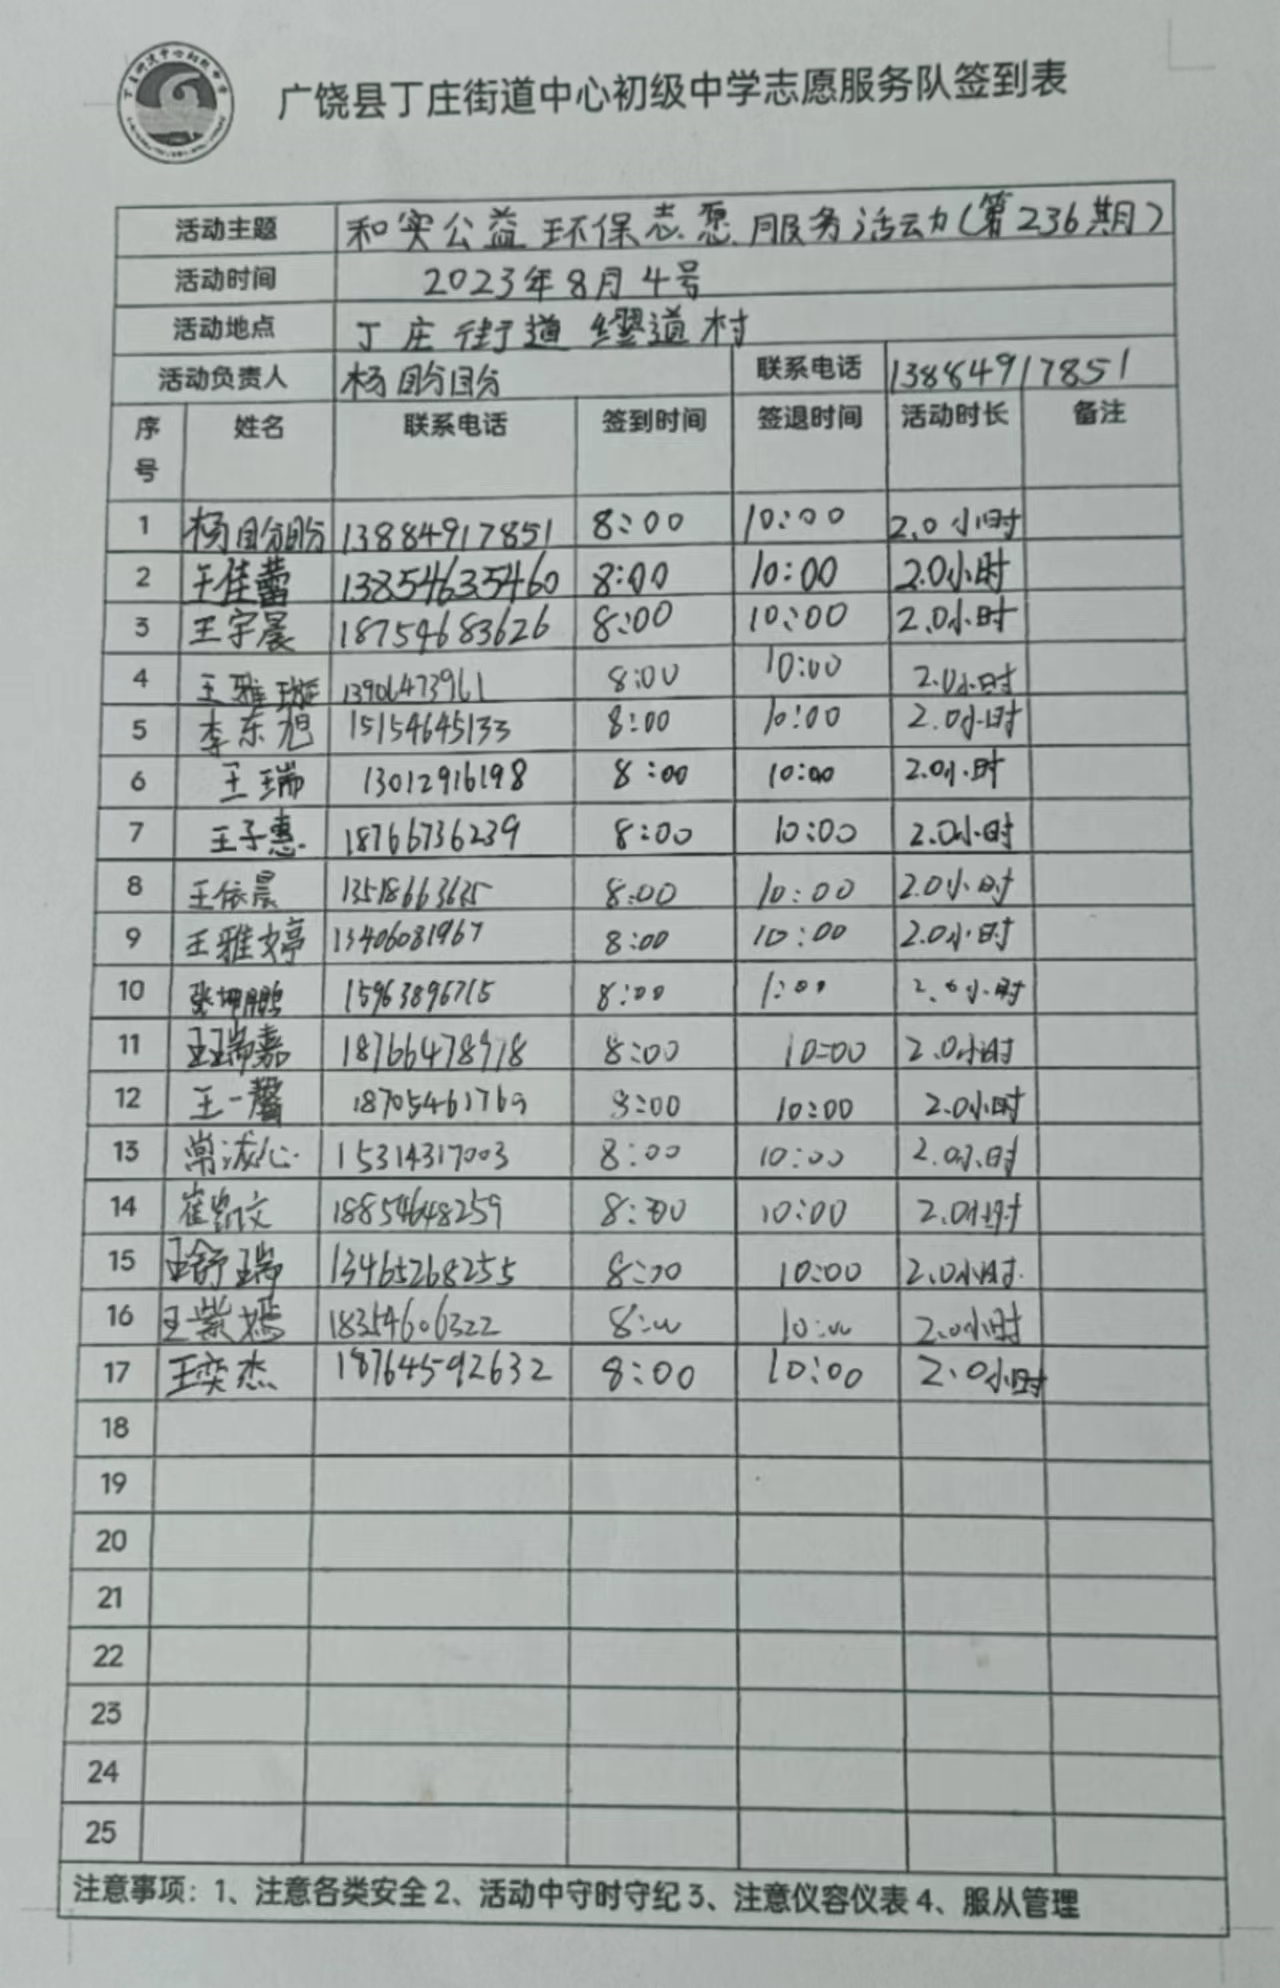 广饶县丁庄街道中心初级中学志愿服务队签到表
活动主题 和实公益环保志愿服务活动(第236期)
活动时间 2023年8月4号
活动地点 丁庄街道缪道村
活动负责人 杨盼盼 联系电话 13884917851
序号 姓名 联系电话 签到时间 签退时间 活动时长 备注
1 杨盼盼 13884917851 8:00 10:00 2.0小时
2 王佳蕾 13854635460 8:00 10:00 2.0小时
3 王宇晨 18754683626 8:00 10:00 2.0小时
4 王雅璇 13906473961 8:00 10:00 2.0小时
5 李东旭 15154645133 8:00 10:00 2.0小时
6 王瑞 13012916198 8:00 10:00 2.0小时
7 王子惠 18766736239 8:00 10:00 2.0小时
8 王依晨 13518663635 8:00 10:00 2.0小时
9 王雅婷 13406081967 8:00 10:00 2.0小时
10 张坤鹏 15963896715 8:00 1:00 2.0小时
11 王瑞嘉 18766478978 8:00 10:00 2.0小时
12 王一馨 8:00 10:00 2.0小时
13 15314317003 8:00 10:00 2.0小时
14 崔凯文 18854648259 8:00 10:00 2.0小时
15 王舒瑞 13465268255 8:00 10:00 2.0小时
16 王紫嫣 18354606322 8:00 10:00 2.0小时
17 王奕杰 18764592632 8:00 10:00 2.0小时
18
19
20
21
22
23
24
25
注意事项：1、注意各类安全 2、活动中守时守纪 3、注意仪容仪表 4、服从管理